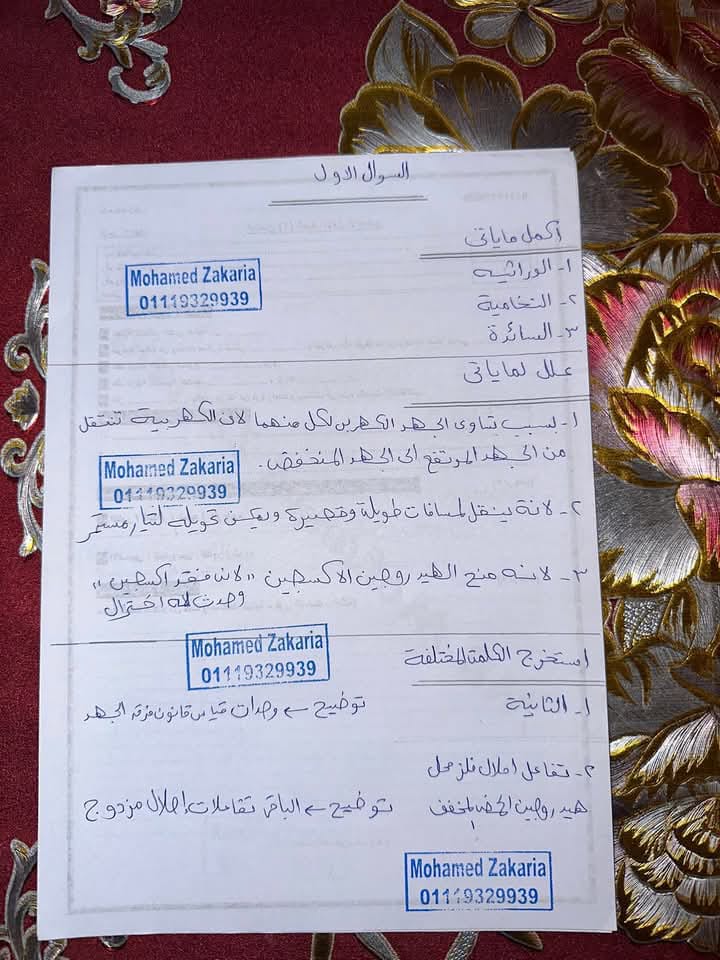 السوال الاول
اكمل ماياتى
١- الوراثيه
Mohamed Zakaria
01119329939
٢- النخامية
٣- السائدة
علل لماياتى
١- بسبب تساوى الجهد الكهربى لكل منهما لان الكهربية تنتقل
من الجهد المرتفع الى الجهد المنخفض.
Mohamed Zakaria
01119329939
٢- لانة ينقل لمسافات طويلة وقصيرة ويمكن تحويله لتيار مستمر
٣- لانه منح الهيدروجين الاكسجين "لانه فقد اكسجين"
وحدث له اختزال
Mohamed Zakaria
01119329939
استخرج الكلمة المختلفة
١- الثانية توضيح ← وحدات قياس قانون فرق الجهد
٢- تفاعل احلال فلز محل
هيدروجين الحمض المخفف توضيح ← الباقى تفاعلات إحلال مزدوج
Mohamed Zakaria
01119329939